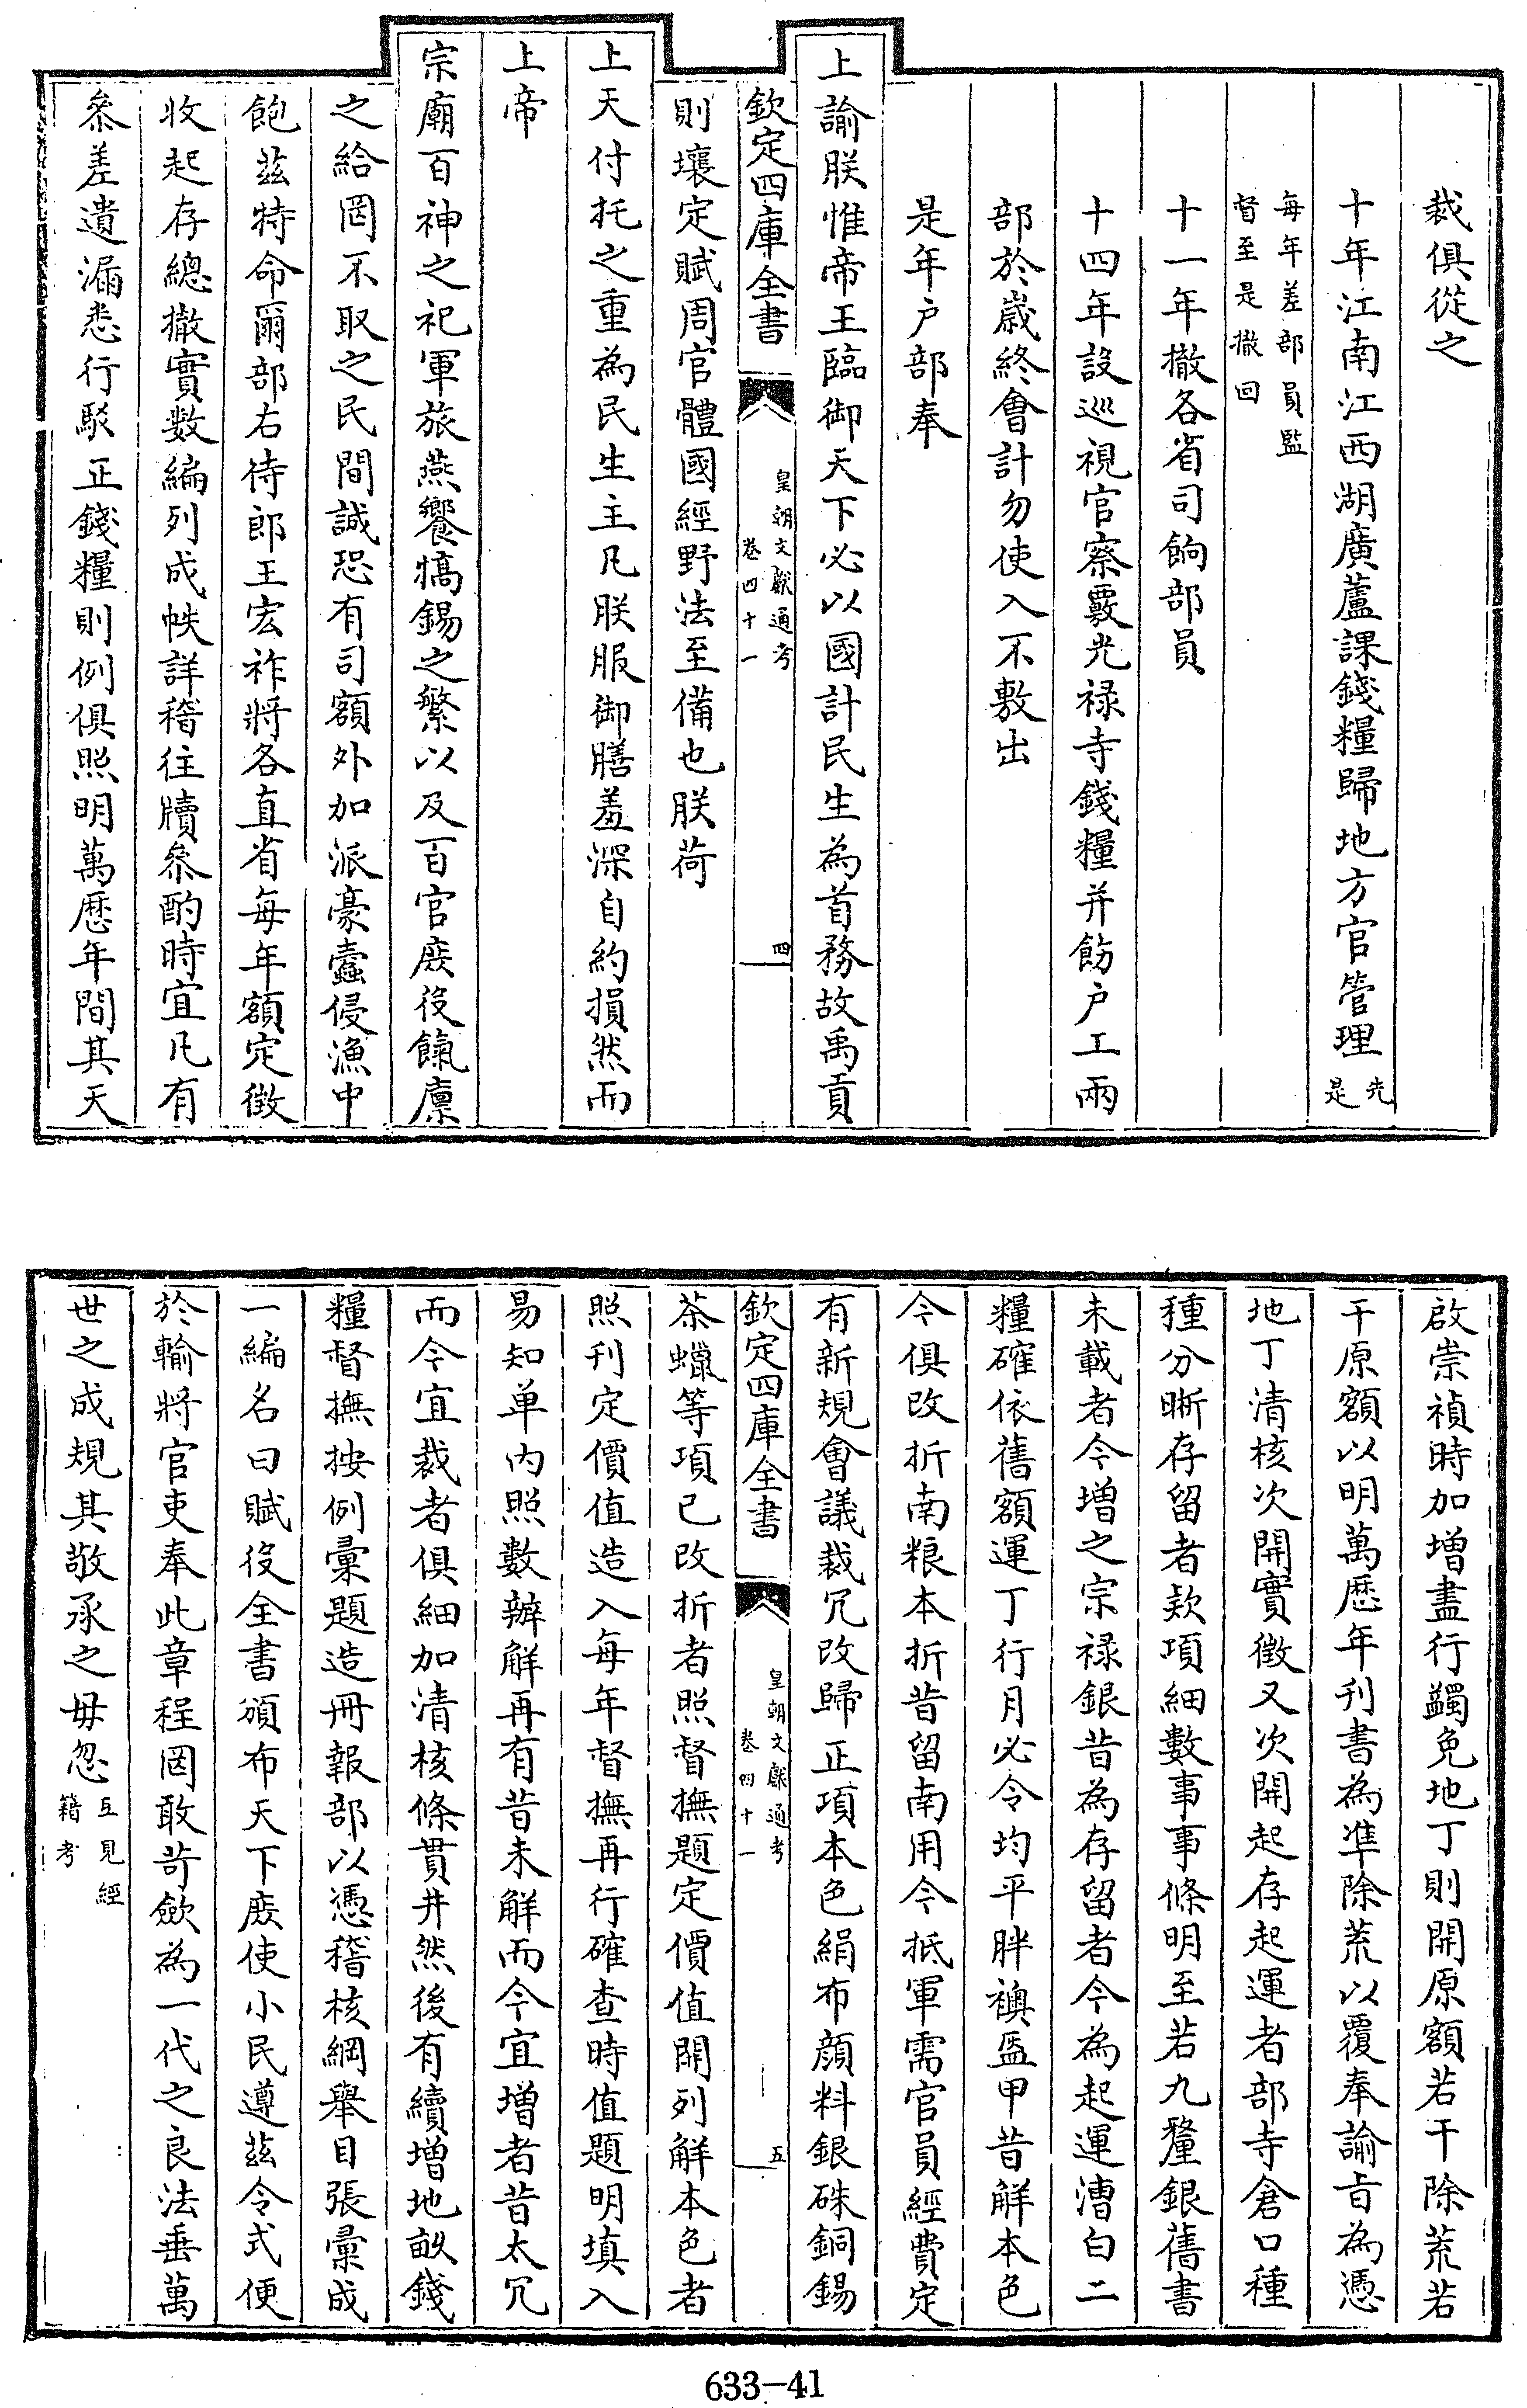 裁俱從之
十年江南江西湖廣蘆課錢糧歸地方官管理先是
每年差部員監督至是撤回
十一年撤各省司餉部員
十四年設巡視官察覈光祿寺錢糧并飭户工兩
部於歲終會計勿使入不敷出
是年户部奉
上諭朕惟帝王臨御天下必以國計民生為首務故禹貢
欽定四庫全書 皇朝文獻通考 卷四十一 四
則壤定賦周官體國經野法至備也朕荷
上天付托之重為民生主凡朕服御膳羞深自約損然而
上帝
宗廟百神之祀軍旅燕饗犒錫之繁以及百官庻役餼廪
之給罔不取之民間誠恐有司額外加派豪蠹侵漁中
飽兹特命爾部右侍郎王宏祚將各直省每年額定徴
收起存總撒實數編列成帙詳稽往牘叅酌時宜凡有
叅差遺漏悉行駁正錢糧則例俱照明萬歴年間其天
啟崇禎時加增盡行蠲免地丁則開原額若干除荒若
干原額以明萬歴年刋書為準除荒以覆奉諭旨為憑
地丁清核次開實徴又次開起存起運者部寺倉口種
種分晰存留者欵項細數事事條明至若九釐銀舊書
未載者今增之宗祿銀昔為存留者今為起運漕白二
糧確依舊額運丁行月必令均平胖襖盔甲昔解本色
今俱改折南粮本折昔留南用今抵軍需官員經費定
有新規會議裁冗改歸正項本色絹布顔料銀硃銅錫
欽定四庫全書 皇朝文獻通考 卷四十一 五
茶蠟等項已改折者照督撫題定價值開列解本色者
照刋定價值造入每年督撫再行確查時值題明填入
易知单内照數辦解再有昔未解而今宜增者昔太冗
而今宜裁者俱細加清核條貫井然後有續增地畝錢
糧督撫按例彚題造冊報部以憑稽核綱舉目張彚成
一編名曰賦役全書頒布天下庻使小民遵兹令式便
於輸將官吏奉此章程罔敢苛歛為一代之良法垂萬
世之成規其敬承之毋忽互見經籍考
633-41